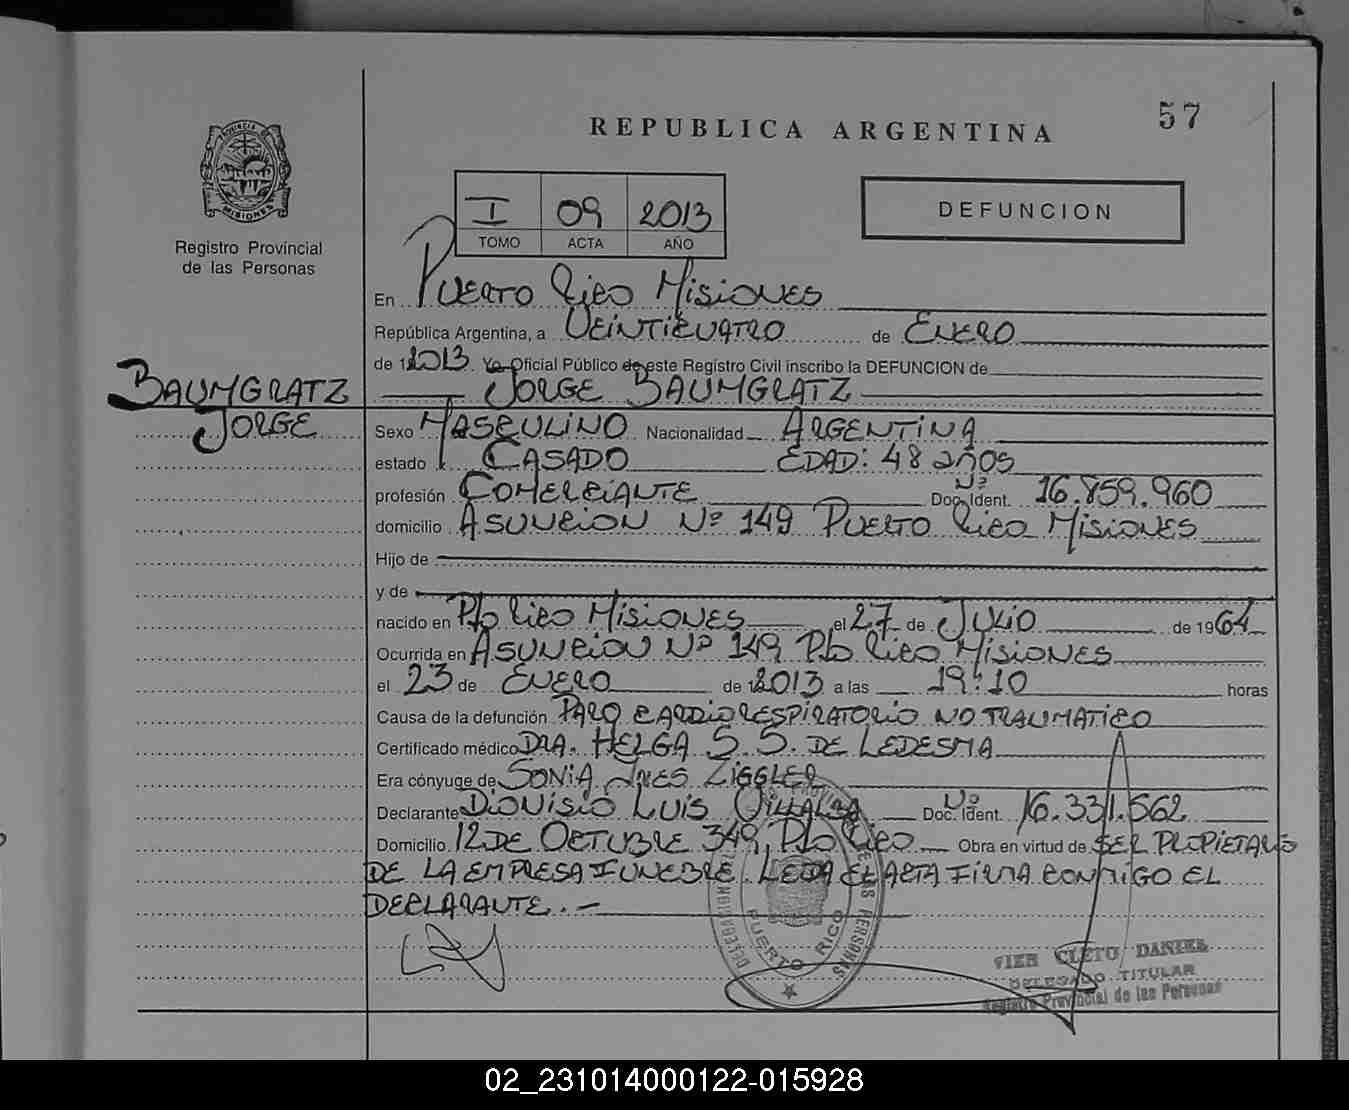 57
REPUBLICA ARGENTINA
PROVINCIA DE MISIONES
Registro Provincial
de las Personas
I 09 2013
TOMO ACTA AÑO
DEFUNCION
En Puerto Rico Misiones
República Argentina, a Veinticuatro de Enero
de 2013. Yo Oficial Público de este Registro Civil inscribo la DEFUNCION de
BAUMGRATZ
JORGE
JORGE BAUMGRATZ
Sexo MASCULINO Nacionalidad ARGENTINA
estado CASADO EDAD: 48 años
profesión COMERCIANTE Nº Doc. Ident. 16.859.960
domicilio ASUNCION Nº 149 PUERTO RICO MISIONES
Hijo de
y de
nacido en Pto Rico Misiones el 27 de JULIO de 1964
Ocurrida en ASUNCION Nº 149 Pto Rico MISIONES
el 23 de ENERO de 2013 a las 19:10 horas
Causa de la defunción PARO CARDIORESPIRATORIO NO TRAUMATICO
Certificado médico DRA. HELGA S. S. DE LEDESMA
Era cónyuge de SONIA INES ZIGGLER
Declarante DIONISIO LUIS VILLALBA Nº Doc. Ident. 16.331.562
Domicilio 12 DE OCTUBRE 349, Pto RICO Obra en virtud de SER PROPIETARIO
DE LA EMPRESA FUNEBRE. LEIDA EL ACTA FIRMA CONMIGO EL
DECLARANTE.-
PUERTO RICO
VIER CLETO DANIEL
DELEGADO TITULAR
Registro Provincial de las Personas
02_231014000122-015928